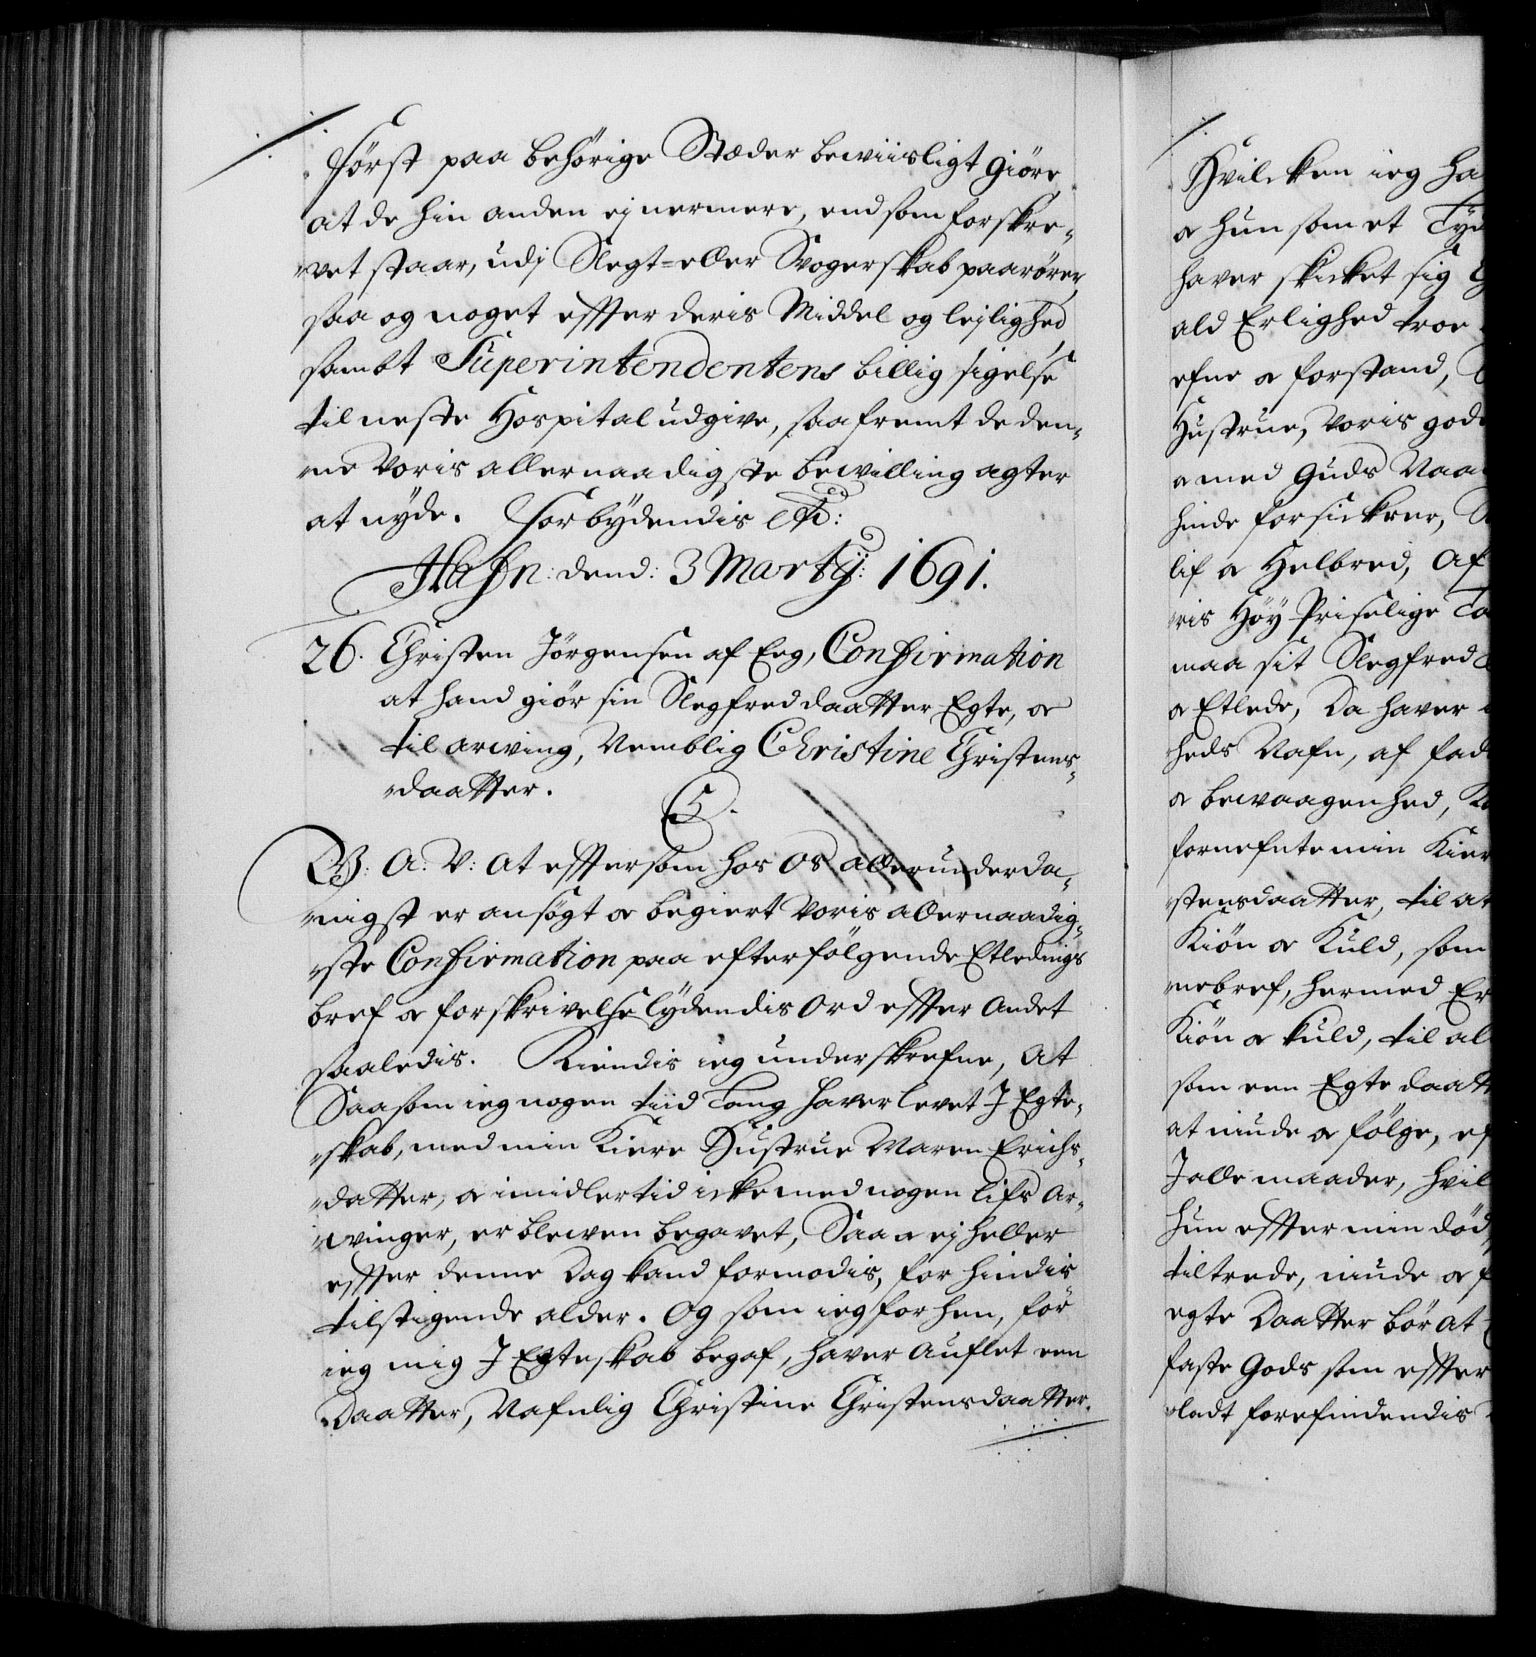 først paa behörige Stæder beviisligt giöre
at de hin anden ej nermere, end som forskre-
vet staar, udj Slegt- eller Svogerskab paarörer,
saa og noget effter deris Middel og lejlighed
sambt Superintendentens billig sigelse
til neste Hospital udgive, saafremt de den-
ne Voris allernaadigste bewilling agter
at nyde. Forbydendis etc:
Hafn: dend: 3 Martij: 1691.
26. Christen Jörgensen af Eeg, Confirmation
at hand giör sin Slegfreddaatter Egte, oc
til arwing, Nemblig Christine Christens-
daatter.
C5.
G. A. V: At efftersom hos Os allerunderda-
nigst er ansögt oc begiert Voris allernaadig-
ste Confirmation paa efterfölgende Etlednings
bref oc forskrivelse lydendis Ord effter Andet
saaledis. Kiendis ieg underskrefne, At
Saasom ieg nogen tiid lang haver levet J Egte-
skab, med min Kiere Hustrue Maren Erichs-
datter, oc imidlertid icke med nogen lifs Ar-
winger, er blewen begavet, Saa oc ej heller
effter denne Dag kand formodis, for hindis
tilstigende alder. Og som ieg forhen, för
ieg mig J Egteskab begaf, haver Auflet een
Daatter, Nafnlig Christine Christensdaatter.
Hvilcken ieg ha
oc hun som et Tyd
haver skicket sig
ald Erlighed troe
efne oc forstand,
Hustrue, Voris gode
oc med Guds Naa
hinde forsickrer,
lif oc Helbred, Af
ris Höy Priselige
maa sit Slegfred
oc Etlede, Da haver
heds Nafn, af fad
oc bewaagenhed,
fornefnte min Kier
stensdaatter, til at
Kiön oc Kuld, som
nebref, hermed Er
Kiön oc kuld, til al
som een Egte daatt
at niude oc fölge, ef
J alle maader, hvil
hun effter min död
tiltrede, niude oc f
egte Daatter bör at
faste Gods som effter
ladt forefindendis